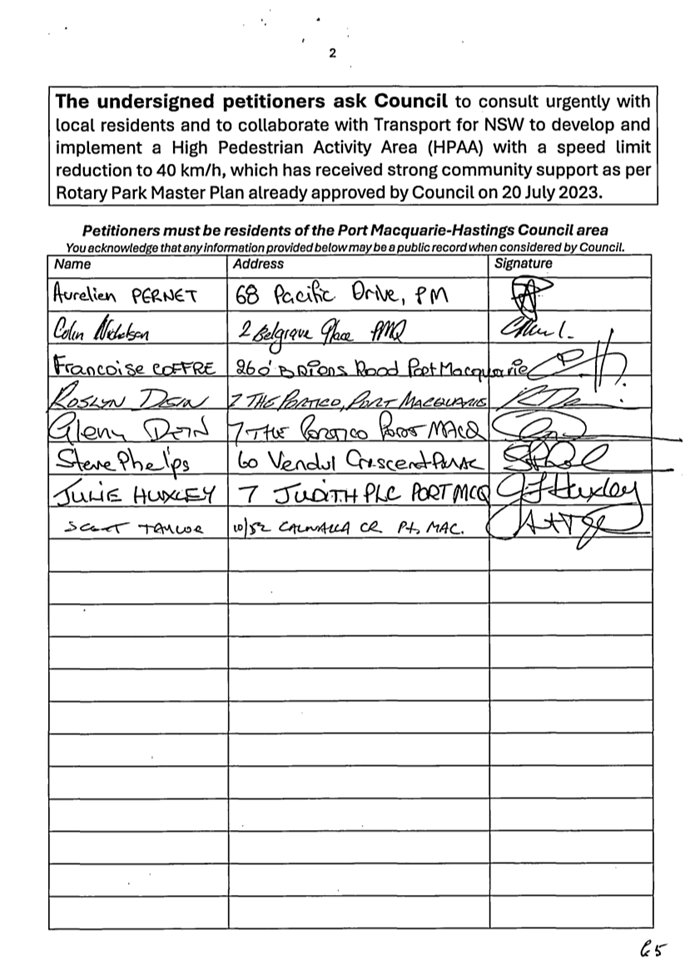 2
The undersigned petitioners ask Council to consult urgently with
local residents and to collaborate with Transport for NSW to develop and
implement a High Pedestrian Activity Area (HPAA) with a speed limit
reduction to 40 km/h, which has received strong community support as per
Rotary Park Master Plan already approved by Council on 20 July 2023.
Petitioners must be residents of the Port Macquarie-Hastings Council area
You acknowledge that any information provided below may be a public record when considered by Council.
Name Address Signature
Aurelien PERNET 68 Pacific Drive, PM
Colin Nicholson 2 Belgrave Place PMQ
Francoise COFFRE Road Port Macquarie
ROSLYN DEIN 7 THE PORTICO, PORT MACQUARIE
Glenn DEIN 7 THE PORTICO PORT MACQ
Steve Phelps 60 Crescent
JULIE HUXLEY 7 JUDITH PLC PORT MCQ J Huxley
SCOTT TAYLOR 10/52 CR Pt, MAC.
65